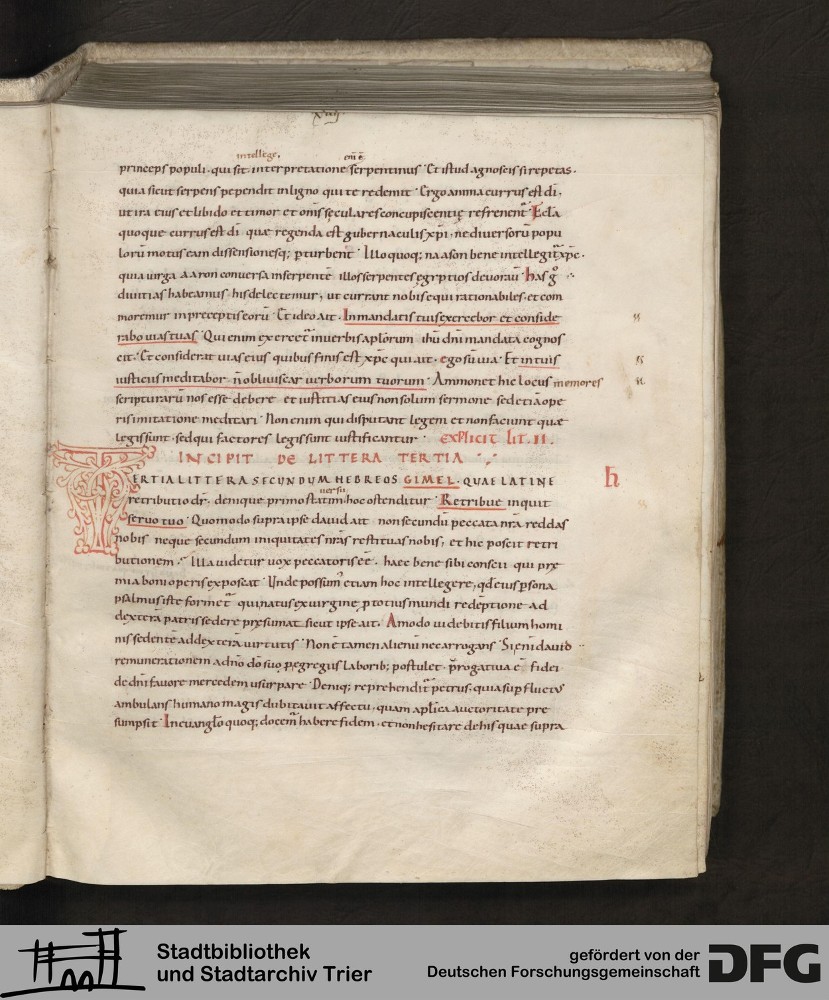 intellege,
princeps populi · qui sit interpretatione serpentinus · Et istud agnoscis si repetas ·
quia sicut serpens pependit in ligno qui te redemit · Ergo anima currus est dī ,
ut ira eius et libido et timor et om̄s seculares concupiscentię refrenent᷑ · Ecl̄a
quoque currus est dī quę regenda est gubernaculis xp̄i · ne diuersorū popu
lorū motus eam dissensionesq; ꝑturbent · Illo quoq; naason bene intellegit᷑ xp̄c ·
quia uirga aaron conuersa in serpentē illos serpentes egyptios deuorau᷑ · has gͦ
diuitias habeamus · his delectemur , ut currant nobis equi rationabiles · et com
moremur in pręceptis eorū · Et ideo ait · In mandatis tuis exercebor et conside
rabo uias tuas · Qui enim exercet᷑ in uerbis apl̄orum ihū dn̄i mandata cognos
cit · Et considerat uias eius quibus finis est xp̄c qui ait · ego sū uia · Et in tuis
iusticiis meditabor n̄ obliuiscar uerborum tuorum · Ammonet hic locus memores
scripturarū nos esse debere et iustitias eius non solum sermone sed etiā ope
ris imitatione meditari · Non enim qui disputant legem et non faciunt quę
legis sunt · sed qui factores legis sunt iustificantur · EXPLICIT lit. II.
INCIPIT DE LITTERA TERTIA
TERTIA LITTERA SECUNDUM HEBREOS GIMEL · QUAE LATINE
retributio dr̄ · denique primo statim hoc ostenditur · Retribue inquit
seruo tuo · Quomodo supra ipse dauid ait non secundū peccata nr̄a reddas
nobis neque secundum iniquitates nr̄as restituas nobis , et hic poscit retri
butionem · Illa uidetur uox peccatoris eē · haec bene sibi conscii qui prę
mia boni operis exposcat · Unde possum᷒ etiam hoc intellegere , qd̄ eius ꝑsona
psalmus iste formet᷑ qui natus ex uirgine ꝓ totius mundi redēptione ad
dexterā patris sedere pręsumat sicut ipse ait · Amodo uidebitis filium homi
nis sedentē ad dexterā uirtutis · Non ē tamen alienū nec arrogans · Si eni dauid
remunerationem a dn̄o dō suo ꝑ egregiis laborib; postulet · p̄rogatiua ē fidei
de dn̄i fauore mercedem usurpare · Deniq; reprehendit᷑ petrus · quia suꝑ fluctus
ambulans humano magis dubitauit affectu , quam apl̄ica auctoritate pre
sumpsit · In euanglͦo quoq; docem᷑ habere fidem · et non hesitare de his quae supra
h
Stadtbibliothek
und Stadtarchiv Trier
gefördert von der
Deutschen Forschungsgemeinschaft
DFG